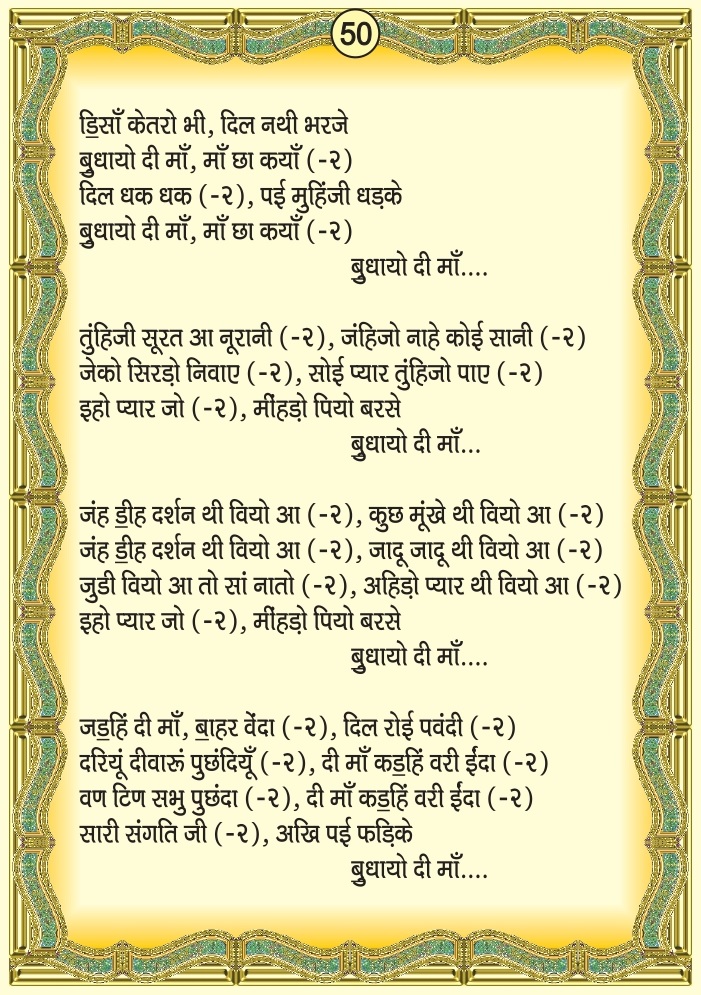 50
ड॒िसाँ केतरो भी, दिल नथी भरजे
ब॒ुधायो दी माँ, माँ छा कयाँ (-२)
दिल धक धक (-२), पई मुहिंजी धड़के
ब॒ुधायो दी माँ, माँ छा कयाँ (-२)
ब॒ुधायो दी माँ....
तुंहिजी सूरत आ नूरानी (-२), जंहिजो नाहे कोई सानी (-२)
जेको सिरड़ो निवाए (-२), सोई प्यार तुंहिजो पाए (-२)
इहो प्यार जो (-२), मींहड़ो पियो बरसे
ब॒ुधायो दी माँ...
जंह ड॒ीह दर्शन थी वियो आ (-२), कुछ मूंखे थी वियो आ (-२)
जंह ड॒ीह दर्शन थी वियो आ (-२), जादू जादू थी वियो आ (-२)
जुडी वियो आ तो सां नातो (-२), अहिड़ो प्यार थी वियो आ (-२)
इहो प्यार जो (-२), मींहड़ो पियो बरसे
ब॒ुधायो दी माँ....
जड॒हिं दी माँ, ब॒ाहर वेंदा (-२), दिल रोई पवंदी (-२)
दरियूं दीवारूं पुछंदियूँ (-२), दी माँ कड॒हिं वरी ईंदा (-२)
वण टिण सभु पुछंदा (-२), दी माँ कड॒हिं वरी ईंदा (-२)
सारी संगति जी (-२), अखि पई फड़िके
ब॒ुधायो दी माँ....